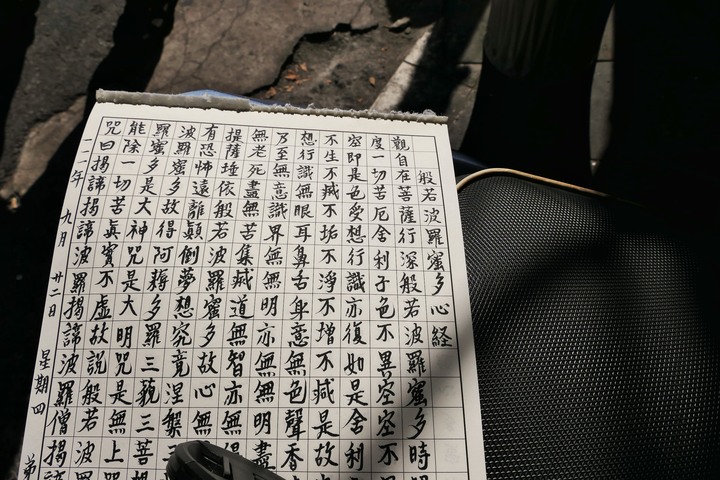 般若波羅蜜多心経
觀自在菩薩行深般若波羅蜜多時
度一切苦厄舍利子色不異空空不
空即是色受想行識亦復如是舍利
不生不滅不垢不淨不增不減是故
想行識無眼耳鼻舌身意無色聲香
乃至無意識界無無明亦無無明盡
無老死盡無苦集滅道無智亦無得
提薩埵依般若波羅蜜多故心無
有恐怖遠離顛倒夢想究竟涅槃
波羅蜜多故得阿耨多羅三藐三菩
羅蜜多是大神咒是大明咒是無上
能除一切苦眞實不虛故說般若波
咒曰揭諦揭諦波羅揭諦波羅僧揭諦
一一一年 九月 廿二日 星期四 弟